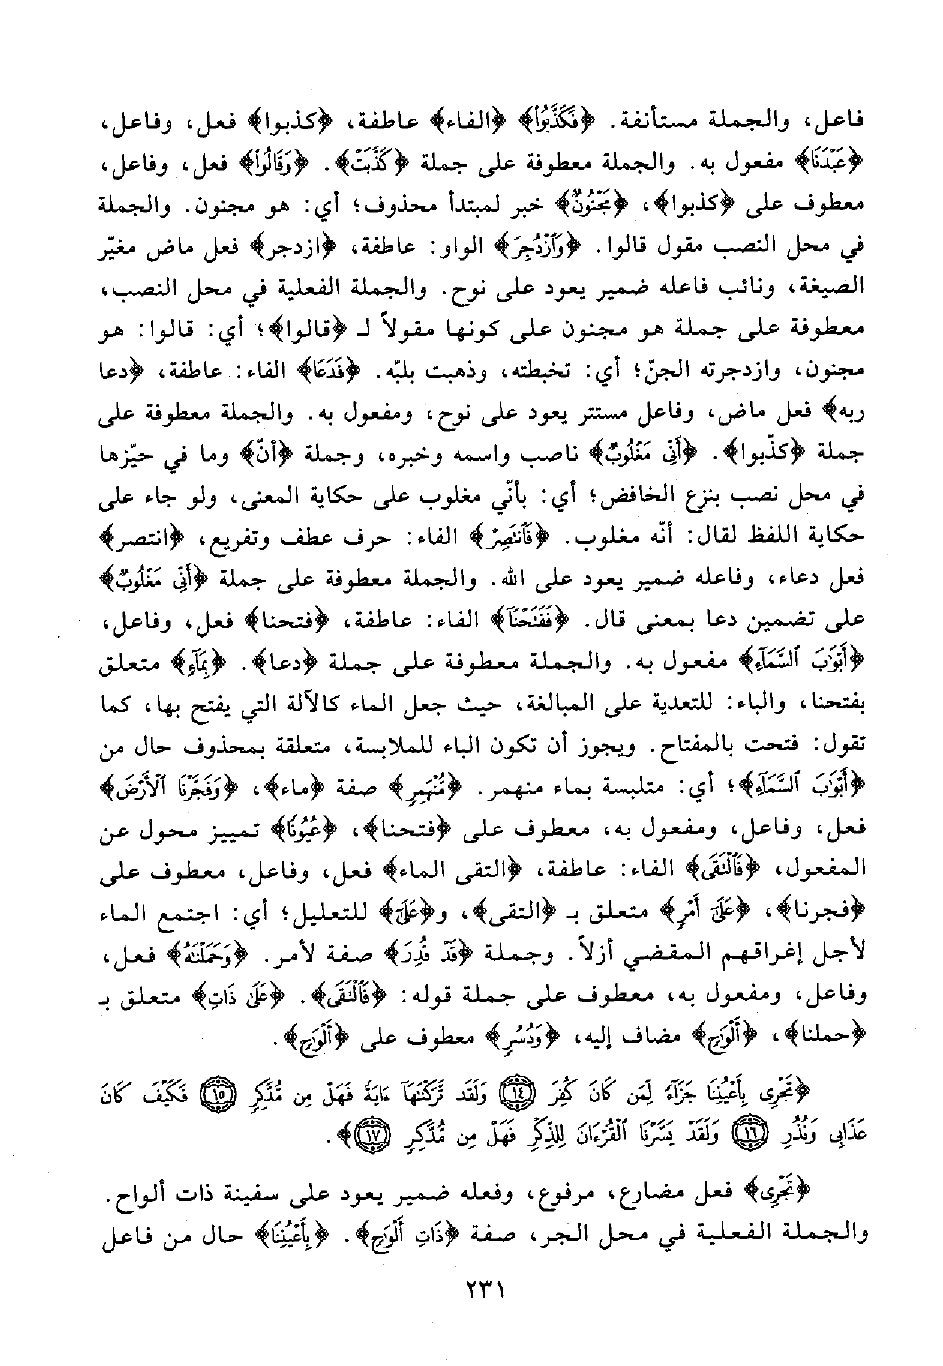 فاعل، والجملة مستأنفة. ﴿فَكَذَّبُوا﴾ ﴿الفاء﴾ عاطفة، ﴿كذبوا﴾ فعل، وفاعل،
﴿عَبْدَنَا﴾ مفعول به. والجملة معطوفة على جملة ﴿كَذَّبَتْ﴾. ﴿وَقَالُوا﴾ فعل، وفاعل،
معطوف على ﴿كذبوا﴾، ﴿مَجْنُونٌ﴾ خبر لمبتدأ محذوف؛ أي: هو مجنون. والجملة
في محل النصب مقول قالوا. ﴿وَازْدُجِرَ﴾ الواو: عاطفة، ﴿ازدجر﴾ فعل ماض مغيّر
الصيغة، ونائب فاعله ضمير يعود على نوح. والجملة الفعلية في محل النصب،
معطوفة على جملة هو مجنون على كونها مقولاً لـ ﴿قالوا﴾؛ أي: قالوا: هو
مجنون، وازدجرته الجنّ؛ أي: تخبطته، وذهبت بلبّه. ﴿فَدَعَا﴾ الفاء: عاطفة، ﴿دعا
ربه﴾ فعل ماض، وفاعل مستتر يعود على نوح، ومفعول به. والجملة معطوفة على
جملة ﴿كذّبوا﴾. ﴿أَنِّي مَغْلُوبٌ﴾ ناصب واسمه وخبره، وجملة ﴿أنّ﴾ وما في حيّزها
في محل نصب بنزع الخافض؛ أي: بأنّي مغلوب على حكاية المعنى، ولو جاء على
حكاية اللفظ لقال: أنّه مغلوب. ﴿فَانْتَصِرْ﴾ الفاء: حرف عطف وتفريع، ﴿انتصر﴾
فعل دعاء، وفاعله ضمير يعود على الله. والجملة معطوفة على جملة ﴿أَنِّي مَغْلُوبٌ﴾
على تضمين دعا بمعنى قال. ﴿فَفَتَحْنَا﴾ الفاء: عاطفة، ﴿فتحنا﴾ فعل، وفاعل،
﴿أَبْوَابَ السَّمَاءِ﴾ مفعول به. والجملة معطوفة على جملة ﴿دعا﴾. ﴿بِمَاءٍ﴾ متعلق
بفتحنا، والباء: للتعدية على المبالغة، حيث جعل الماء كالآلة التي يفتح بها، كما
تقول: فتحت بالمفتاح. ويجوز أن تكون الباء للملابسة، متعلقة بمحذوف حال من
﴿أَبْوَابَ السَّمَاءِ﴾؛ أي: متلبسة بماء منهمر. ﴿مُنْهَمِرٍ﴾ صفة ﴿ماء﴾، ﴿وَفَجَّرْنَا الْأَرْضَ﴾
فعل، وفاعل، ومفعول به، معطوف على ﴿فتحنا﴾، ﴿عُيُونًا﴾ تمييز محول عن
المفعول، ﴿فَالْتَقَى﴾ الفاء: عاطفة، ﴿التقى الماء﴾ فعل، وفاعل، معطوف على
﴿فجرنا﴾، ﴿عَلَى أَمْرٍ﴾ متعلق بـ ﴿التقى﴾، و﴿عَلَى﴾ للتعليل؛ أي: اجتمع الماء
لأجل إغراقهم المقضي أزلاً. وجملة ﴿قَدْ قُدِرَ﴾ صفة لأمر. ﴿وَحَمَلْنَاهُ﴾ فعل،
وفاعل، ومفعول به، معطوف على جملة قوله: ﴿فَالْتَقَى﴾. ﴿عَلَى ذَاتِ﴾ متعلق بـ
﴿حملنا﴾، ﴿أَلْوَاحٍ﴾ مضاف إليه، ﴿وَدُسُرٍ﴾ معطوف على ﴿أَلْوَاحٍ﴾.
﴿تَجْرِي بِأَعْيُنِنَا جَزَاءً لِمَنْ كَانَ كُفِرَ ١٤ وَلَقَدْ تَرَكْنَاهَا ءَايَةً فَهَلْ مِنْ مُدَّكِرٍ ١٥ فَكَيْفَ كَانَ
عَذَابِي وَنُذُرِ ١٦ وَلَقَدْ يَسَّرْنَا الْقُرْءَانَ لِلذِّكْرِ فَهَلْ مِنْ مُدَّكِرٍ ١٧﴾.
﴿تَجْرِي﴾ فعل مضارع، مرفوع، وفعله ضمير يعود على سفينة ذات ألواح.
والجملة الفعلية في محل الجر، صفة ﴿ذَاتِ أَلْوَاحٍ﴾. ﴿بِأَعْيُنِنَا﴾ حال من فاعل
٢٣١